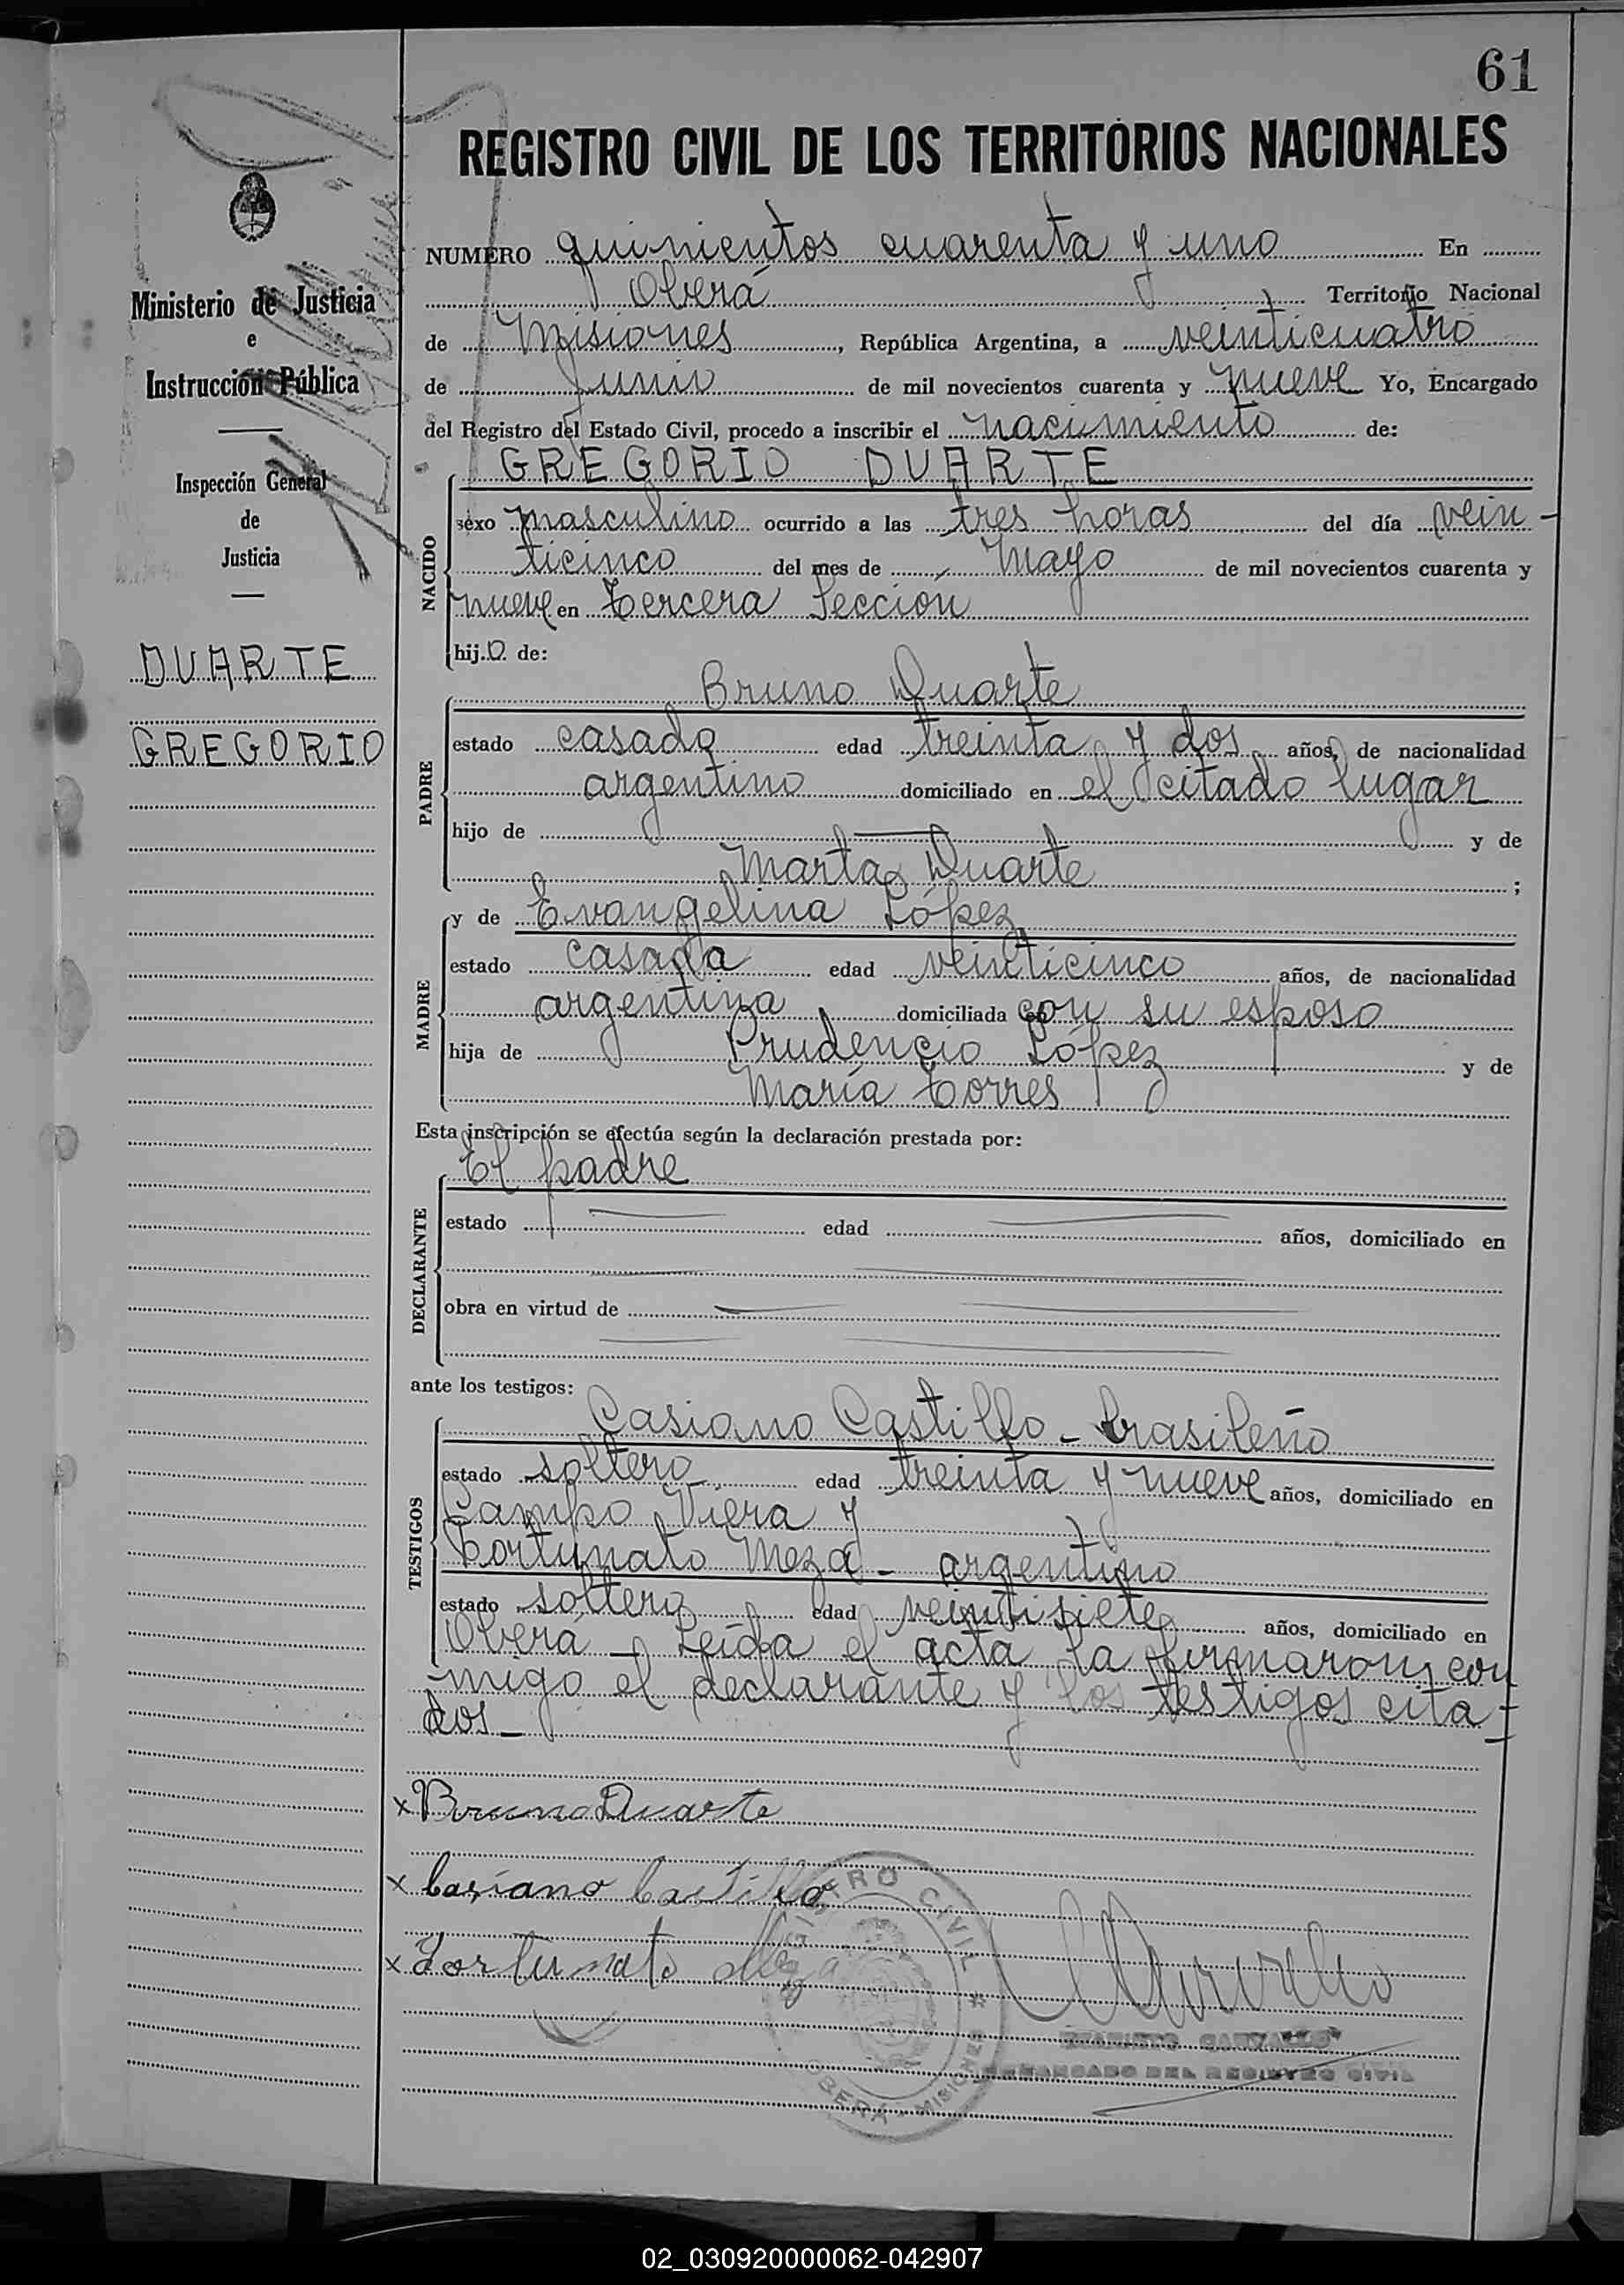 61
REGISTRO CIVIL DE LOS TERRITORIOS NACIONALES
Ministerio de Justicia
e
Instrucción Pública
Inspección General
de
Justicia
DUARTE
GREGORIO
NUMERO quinientos cuarenta y uno En
Oberá Territorio Nacional
de Misiones, República Argentina, a veinticuatro
de Junio de mil novecientos cuarenta y nueve Yo, Encargado
del Registro del Estado Civil, procedo a inscribir el nacimiento de:
GREGORIO DUARTE
NACIDO
sexo masculino ocurrido a las tres horas del día vein-
ticinco del mes de Mayo de mil novecientos cuarenta y
nueve en Tercera Sección
hijo de:
Bruno Duarte
PADRE
estado casado edad treinta y dos años, de nacionalidad
argentino domiciliado en el citado lugar
hijo de y de
Marta Duarte ;
y de Evangelina López
MADRE
estado casada edad veinticinco años, de nacionalidad
argentina domiciliada con su esposo
hija de Prudencio López y de
María Torres
Esta inscripción se efectúa según la declaración prestada por:
El padre
DECLARANTE
estado edad años, domiciliado en
obra en virtud de
ante los testigos:
Casiano Castillo - brasileño
TESTIGOS
estado soltero edad treinta y nueve años, domiciliado en
Campo Viera y
Fortunato Meza - argentino
estado soltero edad veintisiete años, domiciliado en
Oberá - Leída el acta la firmaron con
migo el declarante y los testigos cita-
dos -
x Bruno Duarte
x Casiano Castillo
x Fortunato Meza
REGISTRO CIVIL * OBERÁ - MISIONES
ENCARGADO DEL REGISTRO CIVIL
02_030920000062-042907